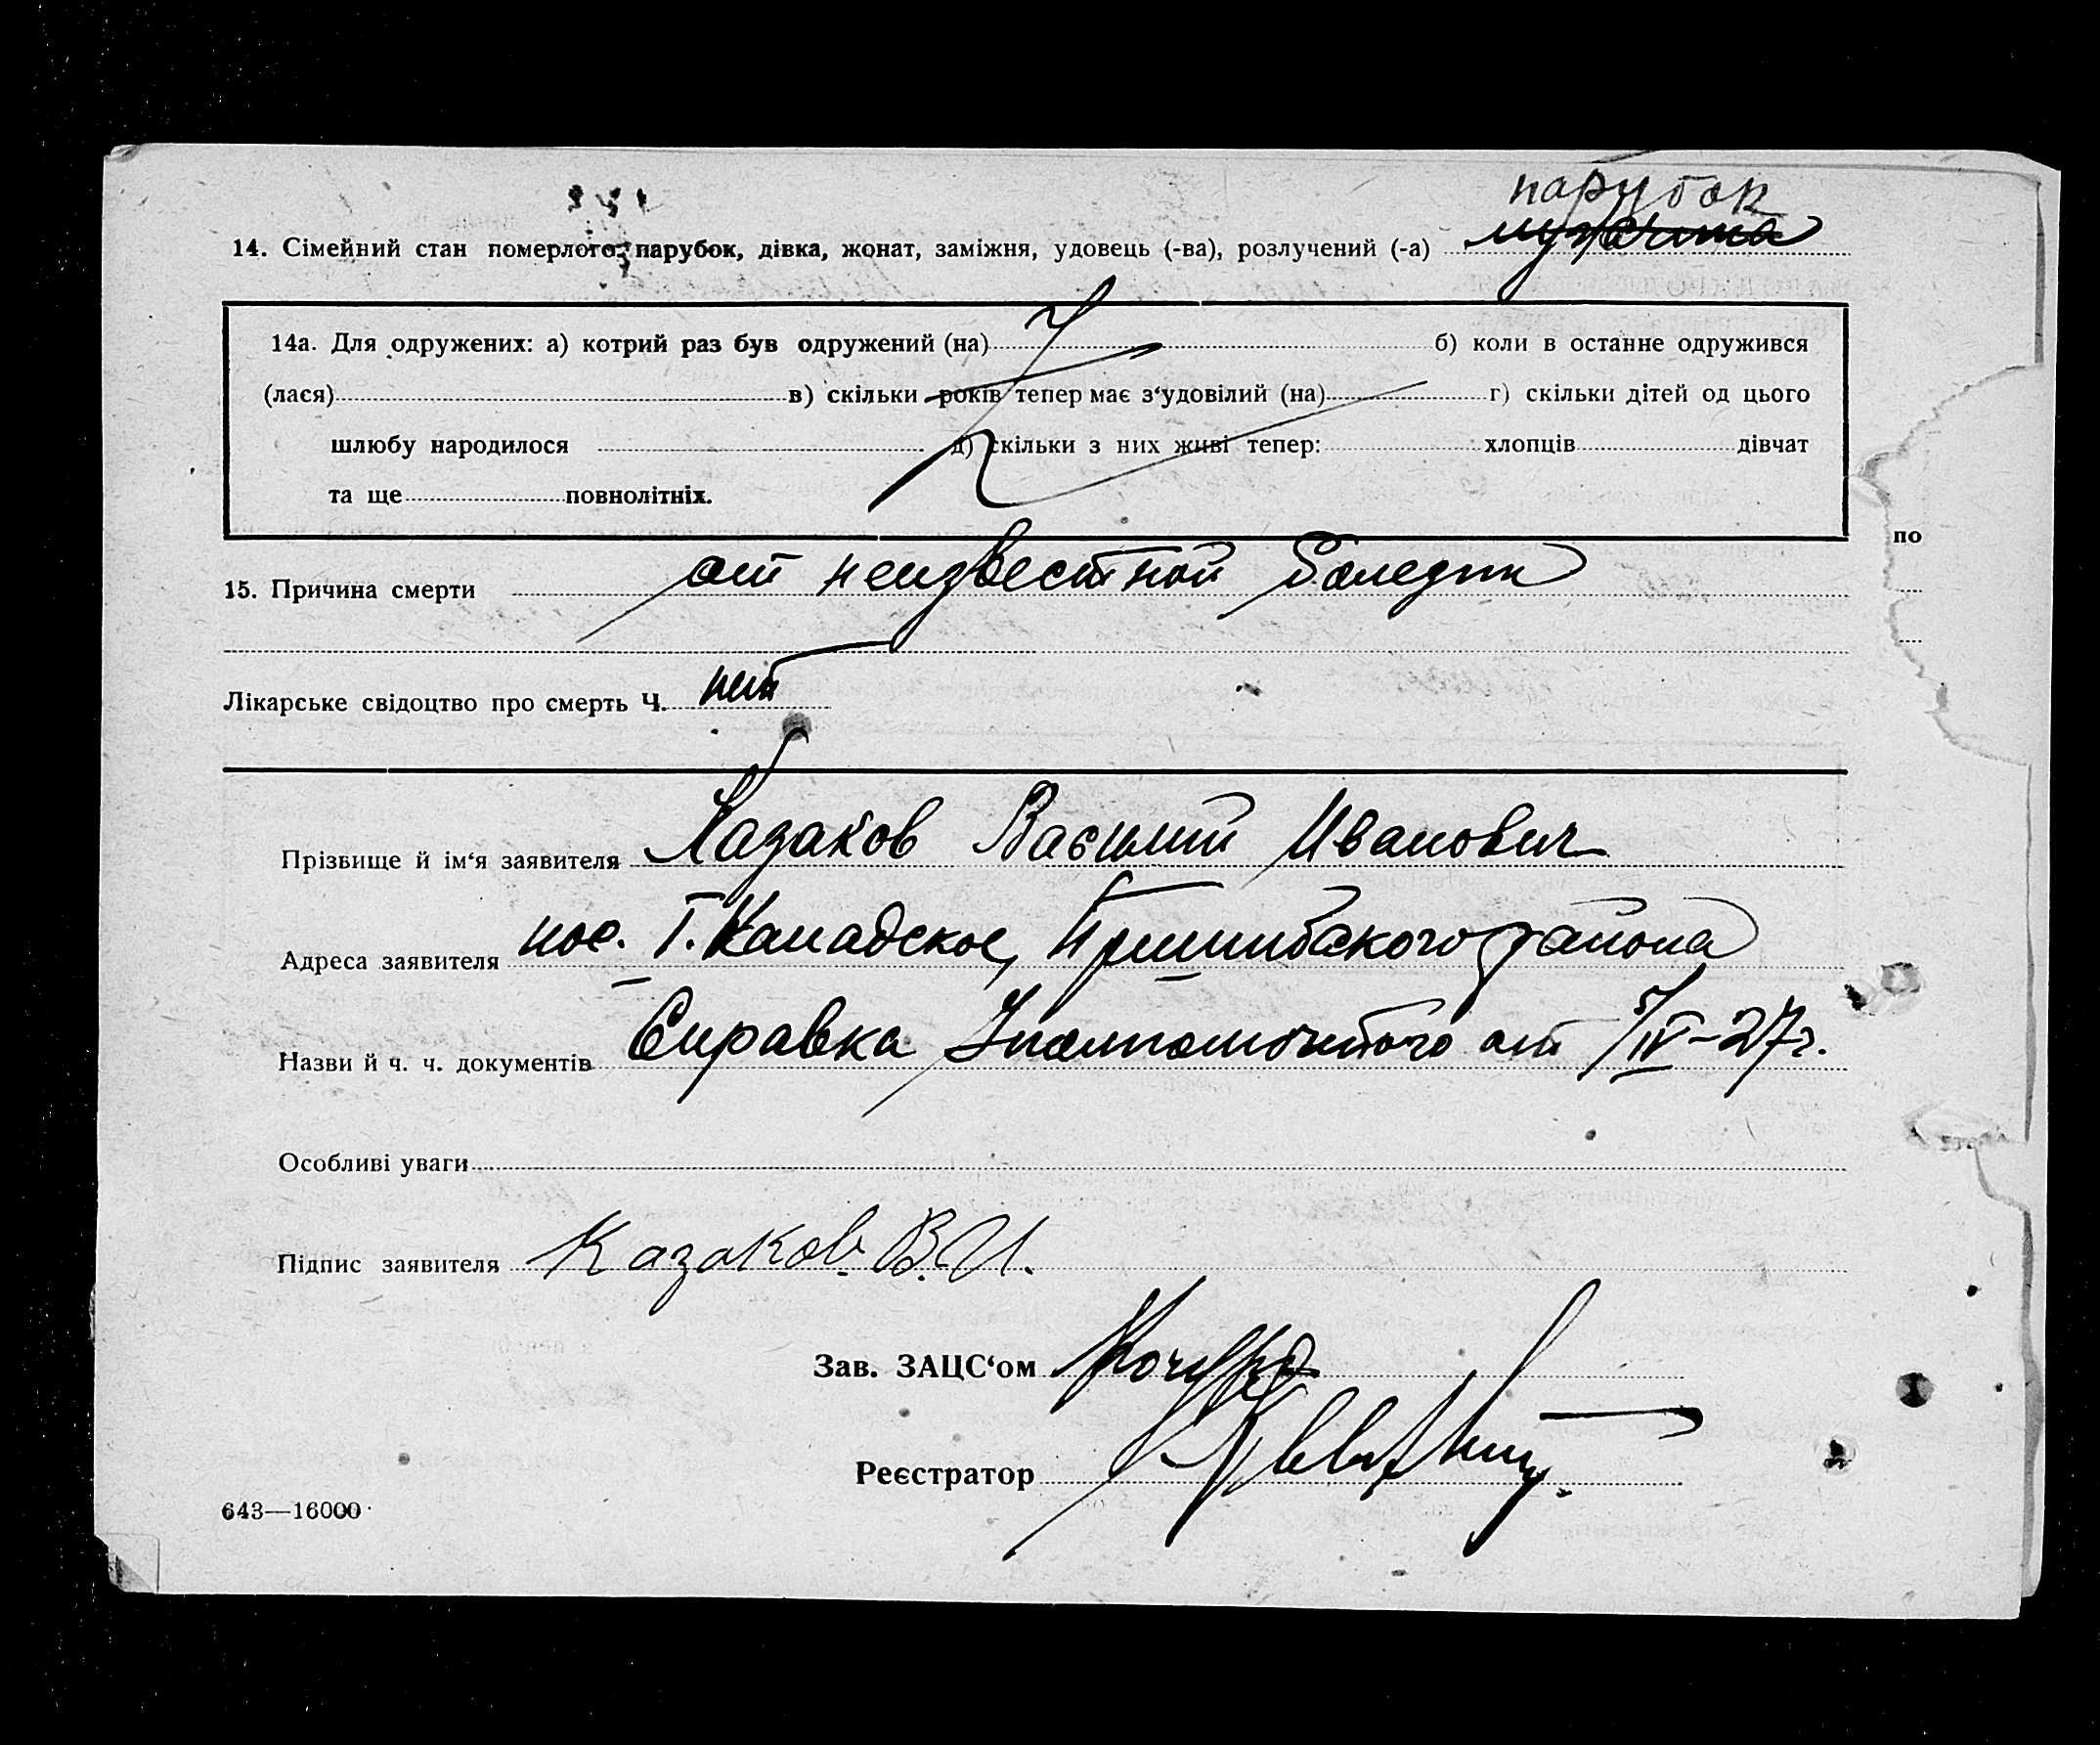 парубок
14. Сімейний стан померлого: парубок, дівка, жонат, заміжня, удовець (-ва), розлучений (-а) мужчина
14а. Для одружених: а) котрий раз був одружений (на) б) коли в останне одружився
(лася) в) скільки років тепер має з‘удовілий (на) г) скільки дітей од цього
шлюбу народилося д) скільки з них живі тепер: хлопців дівчат
та ще повнолітніх.
по
15. Причина смерти от неизвестной болезни
Лікарське свідоцтво про смерть Ч. нет
Прізвище й ім‘я заявителя Казаков Василий Иванович
Адреса заявителя пос. Г. Канадское, Пришибского района
Назви й ч. ч. документів Справка Уполномоченного от 5/IV–27г.
Особливі уваги
Підпис заявителя Казаков. В. И.
Зав. ЗАЦС‘ом
Реєстратор
643—16000